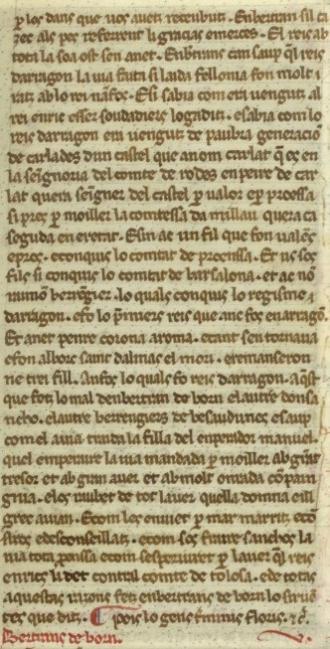 p los dans que uos auetz receubutz. Enbertran sil ca
zec als pes referrent li gracias emerces. El reis ab
tota la soa ost sen anet. Enbtrans can saup ql reis
darragon la uia faita si laida fellonia fon molt i
ratz ab lo rei nãfos. Esi sabia com era uengutz al
rei enric esser soudadiers logaditz. esabia com lo
reis darragon era uengutz de paubra generacio
de carlades dun castel que anom carlat q es en
la seignoria del comte de rodes en peire de car
lat quera seigner del castel p ualor ep proessa
si pres p moiller la comtessa da millau quera ca
seguda en eretat. Esin ac un fil que fon ualens
epros. econquis lo comtat de proenssa. Et us sos
fils si conquis lo comtat de barsalona. et ac nõ
raimõ berrengier. lo quals conquis lo regisme
darragon. efo lo pmiers reis que anc fos en arragõ.
Et anet penre corona a roma. ecant sen tornaua
efon alborc saint dalmas el mori. eremanseron
ne trei fill. Anfos lo quals fo reis darragon. aqst
que fetz lo mal denbertran de born elautre don sa
ncho. elautre berrengiers de besaudunes esaup
com el auia traida la filla del enperador manuel.
quel emperaire la uia mandada p moiller ab grãt
tresor et ab gran auer et ab molt onrada cõpain
gnia. elos raubet de tot lauer quella domna eill
grec auian. Ecom los enuiet p mar marritz ecõ
siros edesconseillatz. ecom sos fraire sanchos la
uia tota proenssa ecom sesperiuret p lauer ql reis
enrics li det contral comte de tolosa. ede totas
aquestas razons fetz enbertrans de born lo siruẽ
tes que ditz. Pois lo gens terminis floris. etc.
Bertrans de born.